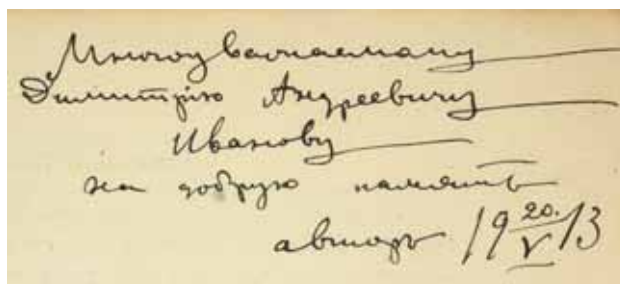 Многоуважаемому
Димитрію Андреевичу
Иванову
на добрую память
авторъ 19 20./V 13